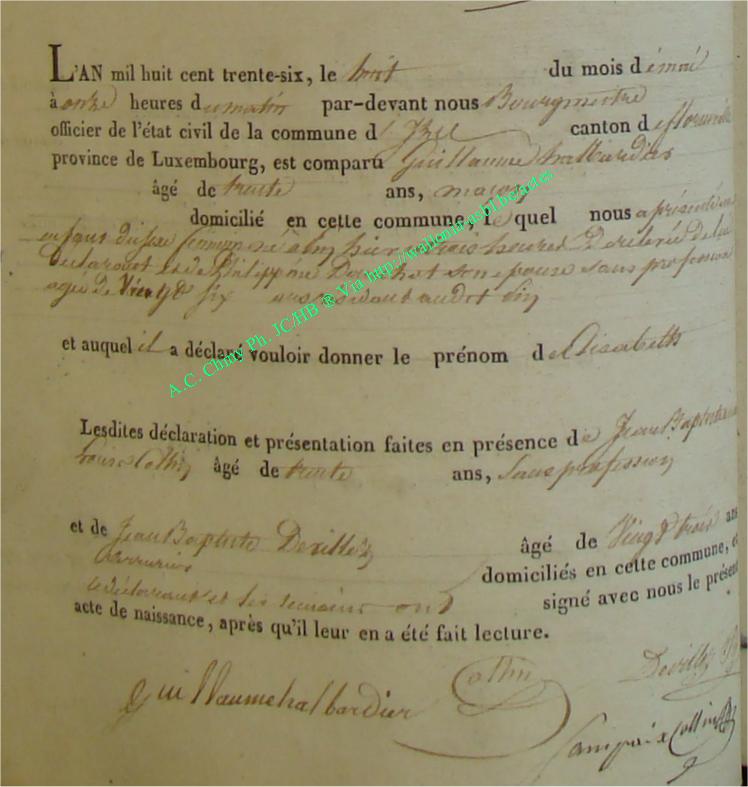 L'AN mil huit cent trente-six, le huit du mois d
à onze heures du matin par-devant nous Bourgmestre
officier de l'état civil de la commune d'Izel canton de florenville
province de Luxembourg, est comparu Guillaume halbardier
âgé de trente ans, maçon
domicilié en cette commune, le quel nous a présenté un
enfant du sexe né à Pin hier à trois heures De relevé de lui
Déclarant et de son épouse sans profession
agée de Vingt six ans
et auquel il a déclaré vouloir donner le prénom d'Elisabeth
Lesdites déclaration et présentation faites en présence de Jean Baptiste
Collin âgé de trente ans, sans profession
et de Jean Baptiste Devillez âgé de Vingt trois ans
Serrurier domiciliés en cette commune, et
le déclarant et les temoins ont signé avec nous le présent
acte de naissance, après qu'il leur en a été fait lecture.
Guillaume halbardier Collin Devillez
Collin
A.C. Chiny Ph. JC/HB ® Via http://wallonia.asbl.be/actes